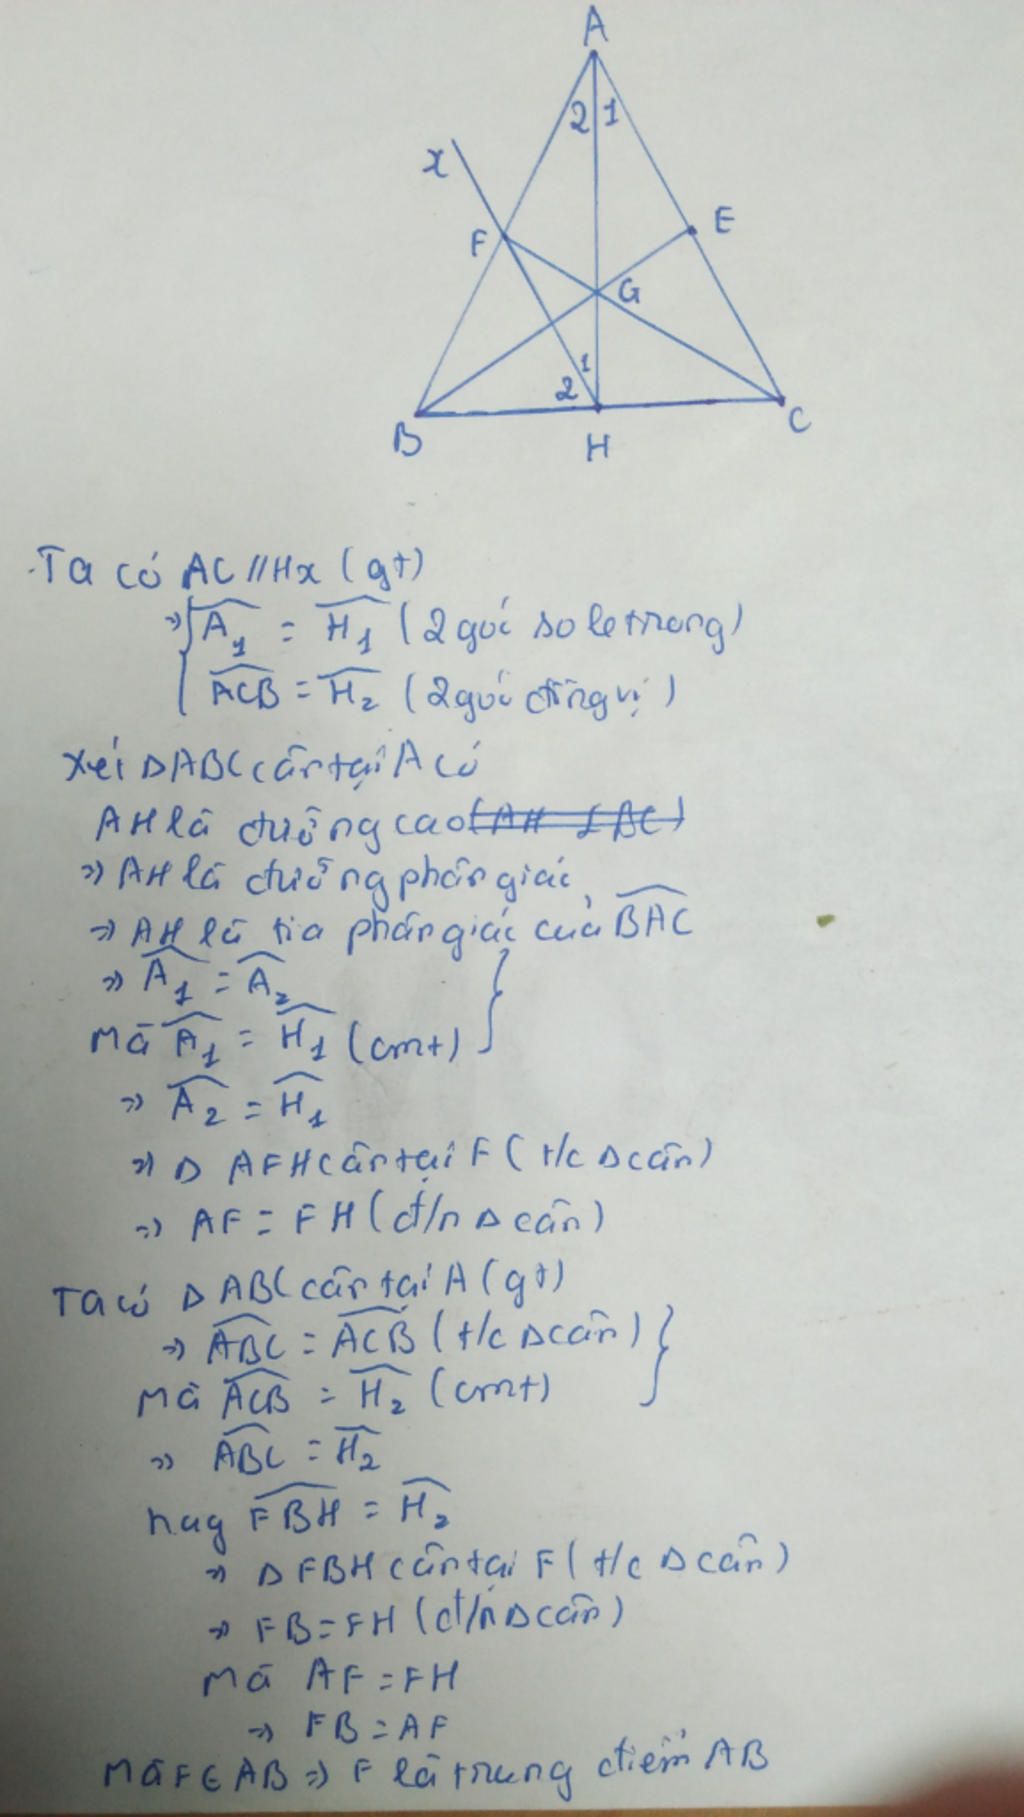 A
2 1
x
F
E
G
1
2
B
H
C
Ta có AC // Hx (gt)
=> { Â₁ = Ĥ₁ (2 góc so le trong)
ACB = Ĥ₂ (2 góc đồng vị)
Xét Δ ABC cân tại A có
AH là đường cao (AH ⊥ BC)
=> AH là đường phân giác
=> AH là tia phân giác của BAC
=> Â₁ = Â₂
Mà Â₁ = Ĥ₁ (cmt) }
=> Â₂ = Ĥ₁
=> Δ AFH cân tại F (t/c Δ cân)
=> AF = FH (đ/n Δ cân)
Ta có Δ ABC cân tại A (gt)
=> ABC = ACB (t/c Δ cân) }
Mà ACB = Ĥ₂ (cmt)
=> ABC = Ĥ₂
hay FBH = Ĥ₂
=> Δ FBH cân tại F (t/c Δ cân)
=> FB = FH (đ/n Δ cân)
Mà AF = FH
=> FB = AF
Mà F ∈ AB => F là trung điểm AB